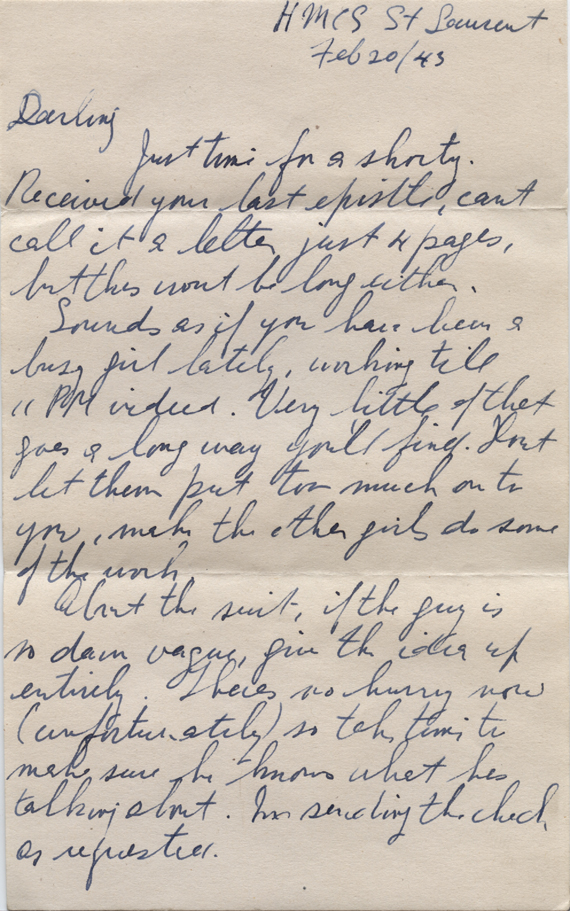 HMCS St Laurent
Feb 20/43
Darling
Just time for a shorty.
Received your last epistle, cant
call it a letter, just 4 pages,
but this wont be long either.
Sounds as if you have been a
busy girl lately, working till
11 PM indeed. Very little of that
goes a long way you'll find. Dont
let them put too much on to
you, make the other girls do some
of the work.
About the suit, if the guy is
so damn vague, give the idea up
entirely. Theres no hurry now
(unfortunately) so take time to
make sure he knows what hes
talking about. Im sending the check
as requested.